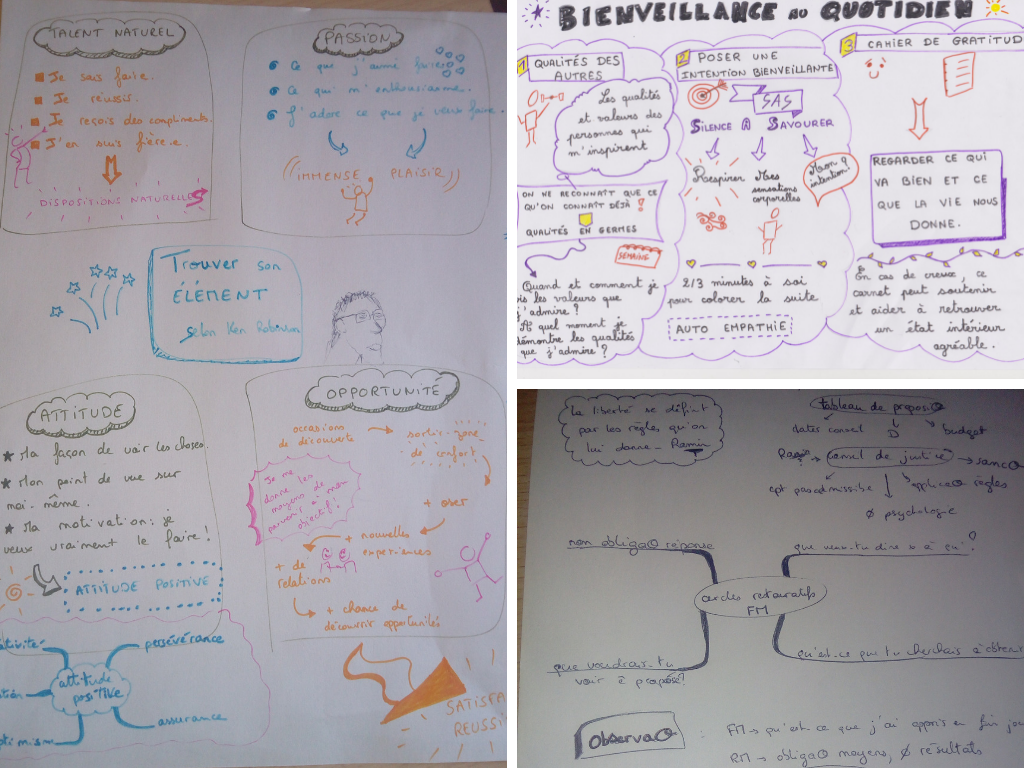 TALENT NATUREL
Je sais faire.
Je réussis.
Je reçois des compliments.
J'en suis fièr·e.
DISPOSITIONS NATURELLES
PASSION
Ce que j'aime faire
Ce qui m'enthousiasme.
J'adore ce que je veux faire.
IMMENSE PLAISIR
Trouver son
ÉLÉMENT
selon Ken Robinson
ATTITUDE
Ma façon de voir les choses.
Mon point de vue sur
moi-même.
Ma motivation: je
veux vraiment le faire!
ATTITUDE POSITIVE
persévérance
attitude
positive
assurance
OPPORTUNITÉ
occasions
de découverte
sortir zone
de confort
Je me
donne les
moyens de
parvenir à mon
objectif!
+ oser
+ nouvelles
expériences
+ de
relations
+ chance de
découvrir opportunités
SATISFA
REUSSI
BIENVEILLANCE AU QUOTIDIEN
1 QUALITÉS DES
AUTRES
Les qualités
et valeurs des
personnes qui
m'inspirent
ON NE RECONNAÎT QUE CE
QU'ON CONNAÎT DÉJÀ !
QUALITÉS EN GERMES
SEMAINE
Quand et comment je
is les valeurs que
j'admire?
À quel moment je
démontre les qualités
que j'admire?
2 POSER UNE
INTENTION BIENVEILLANTE
SAS
SILENCE À SAVOURER
Respirer
Mes
sensations
corporelles
Mon
intention!
2/3 minutes à soi
pour colorer la suite
AUTO EMPATHIE
3 CAHIER DE GRATITUD
REGARDER CE QUI
VA BIEN ET CE
QUE LA VIE NOUS
DONNE.
En cas de creux, ce
carnet peut soutenir
et aider à retrouver
un état intérieur
agréable.
La liberté se définit
par les règles qu'on
lui donne - Ramïn
tableau de propos
dates conseil
budget
conseil de justice
sanc
cpt pas admissible
applica règles
Ø psychologie
non obliga réponse
que veux-tu dire à qui?
cercles restauratifs
FM
que voudrais-tu
voir proposé?
qu'est-ce que tu cherchais à obtenir
Observa
FM → qu'est-ce que j'ai appris en
RM → obliga moyens, Ø résultats